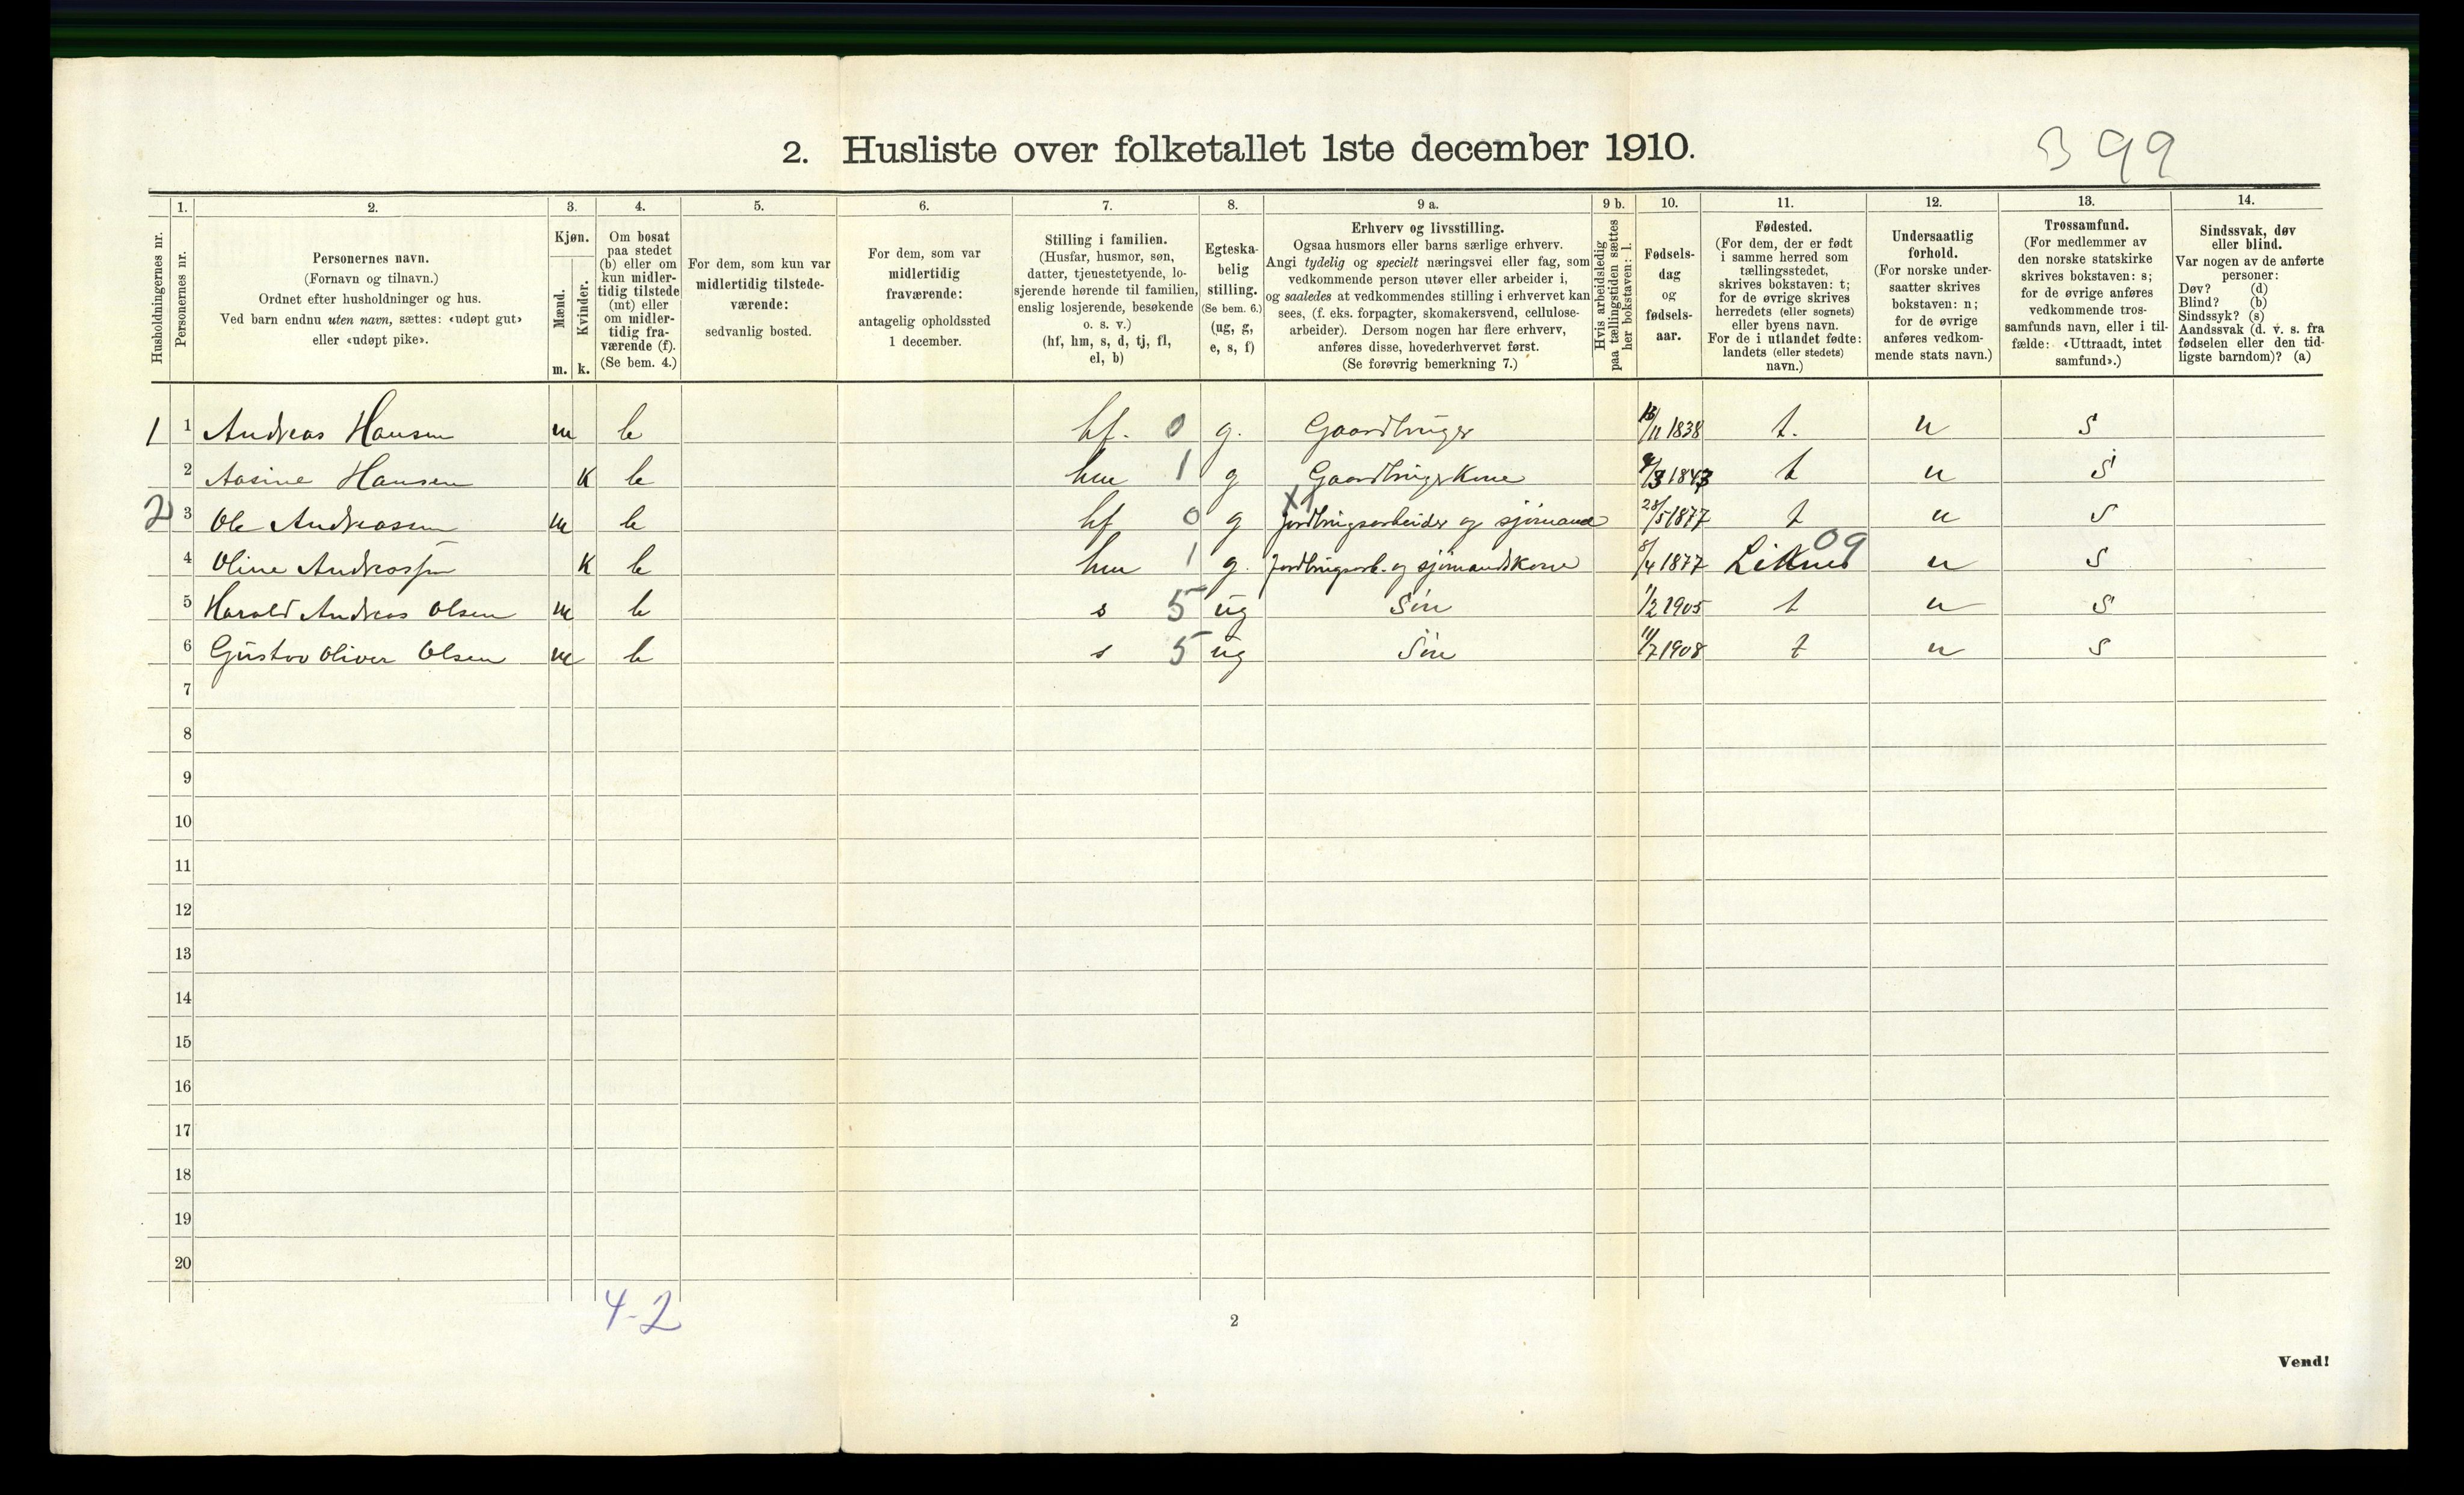 2. Husliste over folketallet 1ste december 1910.
399
Husholdningernes nr.
1.
Personernes nr.
2.
Personernes navn.
(Fornavn og tilnavn.)
Ordnet efter husholdninger og hus.
Ved barn endnu uten navn, sættes: «udøpt gut»
eller «udøpt pike».
3.
Kjøn.
Mænd.
Kvinder.
m. k.
4.
Om bosat
paa stedet
(b) eller om
kun midler-
tidig tilstede
(mt) eller
om midler-
tidig fra-
værende (f).
(Se bem. 4.)
5.
For dem, som kun var
midlertidig tilstede-
værende:
sedvanlig bosted.
6.
For dem, som var
midlertidig
fraværende:
antagelig opholdssted
1 december.
7.
Stilling i familien.
(Husfar, husmor, søn,
datter, tjenestetyende, lo-
sjerende hørende til familien,
enslig losjerende, besøkende
o. s. v.)
(hf, hm, s, d, tj, fl,
el, b)
8.
Egteska-
belig
stilling.
(Se bem. 6.)
(ug, g,
e, s, f)
9 a.
Erhverv og livsstilling.
Ogsaa husmors eller barns særlige erhverv.
Angi tydelig og specielt næringsvei eller fag, som
vedkommende person utøver eller arbeider i,
og saaledes at vedkommendes stilling i erhvervet kan
sees, (f. eks. forpagter, skomakersvend, cellulose-
arbeider). Dersom nogen har flere erhverv,
anføres disse, hovederhvervet først.
(Se forøvrig bemerkning 7.)
9 b.
Hvis arbeidsledig
paa tællingstiden sættes
her bokstaven: l.
10.
Fødsels-
dag
og
fødsels-
aar.
11.
Fødested.
(For dem, der er født
i samme herred som
tællingsstedet,
skrives bokstaven: t;
for de øvrige skrives
herredets (eller sognets)
eller byens navn.
For de i utlandet fødte:
landets (eller stedets)
navn.)
12.
Undersaatlig
forhold.
(For norske under-
saatter skrives
bokstaven: n;
for de øvrige
anføres vedkom-
mende stats navn.)
13.
Trossamfund.
(For medlemmer av
den norske statskirke
skrives bokstaven: s;
for de øvrige anføres
vedkommende tros-
samfunds navn, eller i til-
fælde: «Uttraadt, intet
samfund».)
14.
Sindssvak, døv
eller blind.
Var nogen av de anførte
personer:
Døv? (d)
Blind? (b)
Sindssyk? (s)
Aandssvak (d. v. s. fra
fødselen eller den tid-
ligste barndom)? (a)
1 1 Andreas Hansen m b hf. 0 g. Gaardbruger /11 1838 t. n s
2 Aasine Hansen k b hm 1 g Gaardbrugerkone /3 1843 t n s
2 3 Ole Andreasen m b hf 0 g X1 Jordbrugsarbeider og sjømand 28/5 1877 t n s
4 Oline Andreassen k b hm 1 g. Jordbrugsarb. og sjømandskone 8/4 1877 Liknes 09 n s
5 Harald Andreas Olsen m b s 5 ug Søn 1/2 1905 t n s
6 Gustav Oliver Olsen m b s 5 ug Søn 11/7 1908 t n s
7
8
9
10
11
12
13
14
15
16
17
18
19
20
4-2
2
Vend!